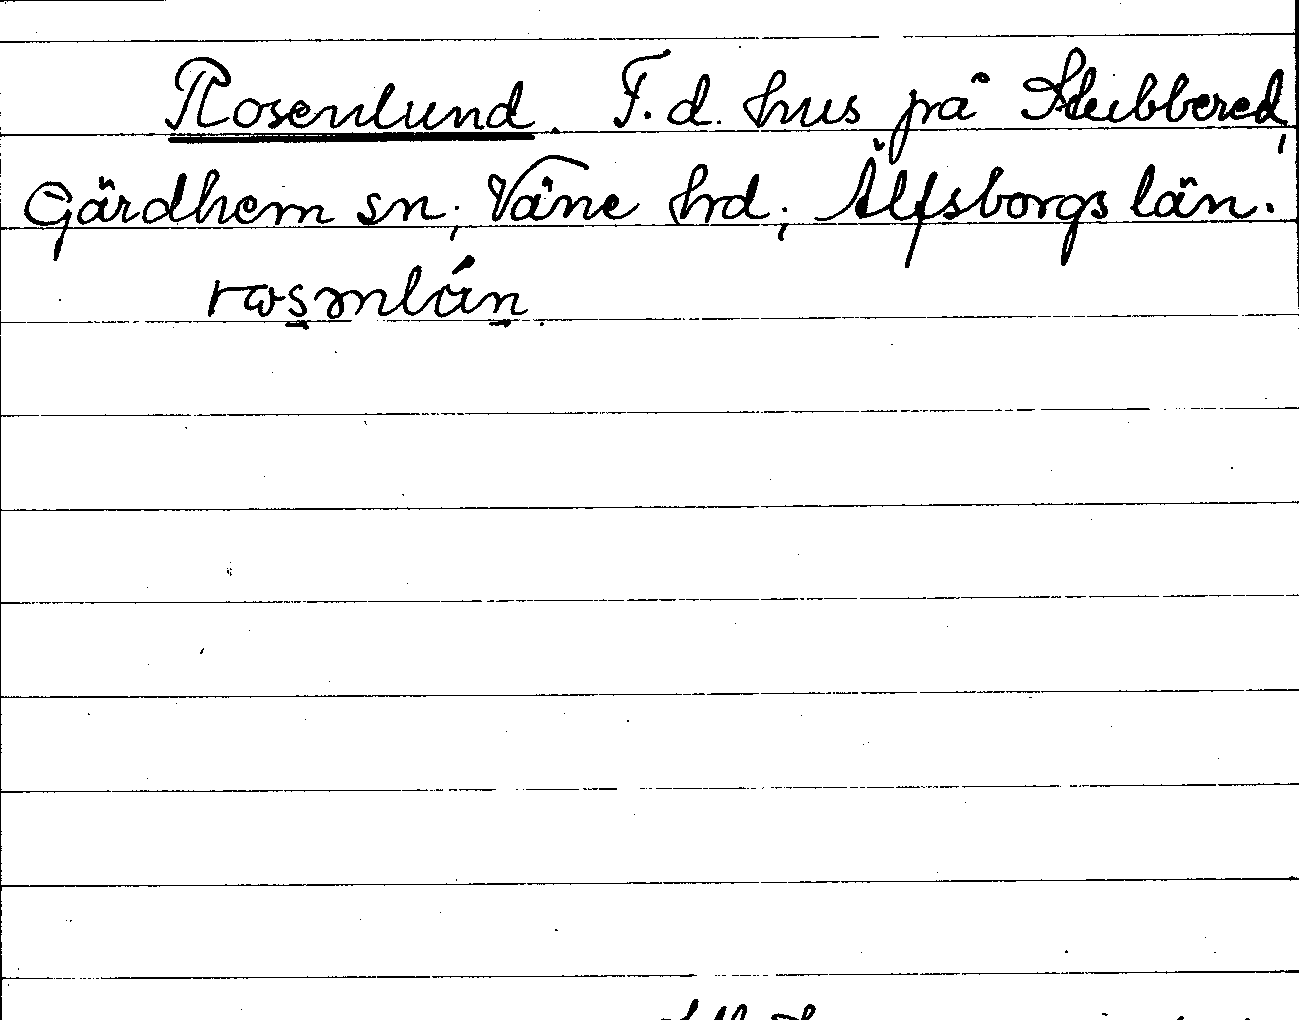 Rosenlund. F.d. hus på Stubbered,
Gärdhem sn, Väne hrd, Älfsborgs län.